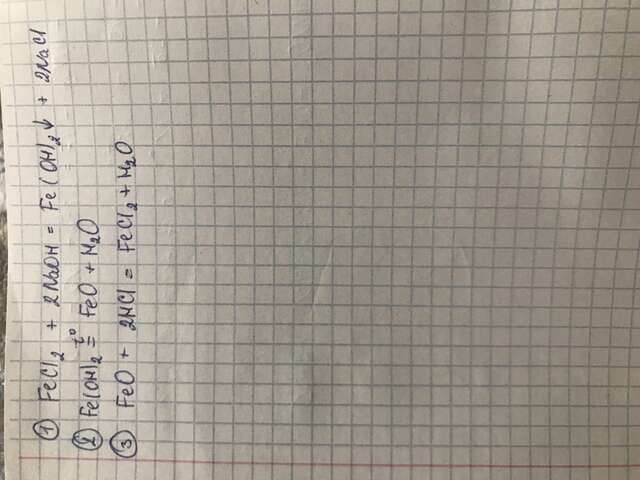 ① FeCl₂ + 2NaOH = Fe(OH)₂↓ + 2NaCl
② Fe(OH)₂ =t° FeO + H₂O
③ FeO + 2HCl = FeCl₂ + H₂O